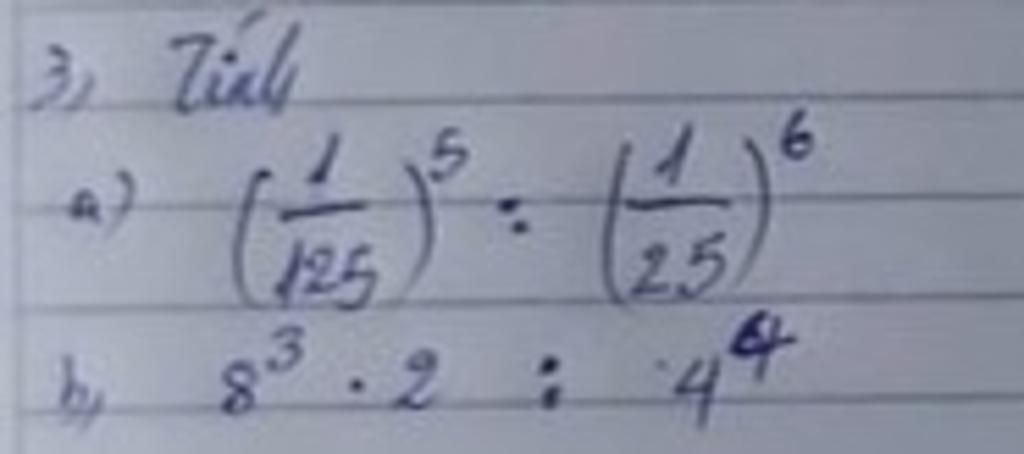 3, Tính
a) (1/125)^5 : (1/25)^6
b, 8^3 . 2 : 4^4